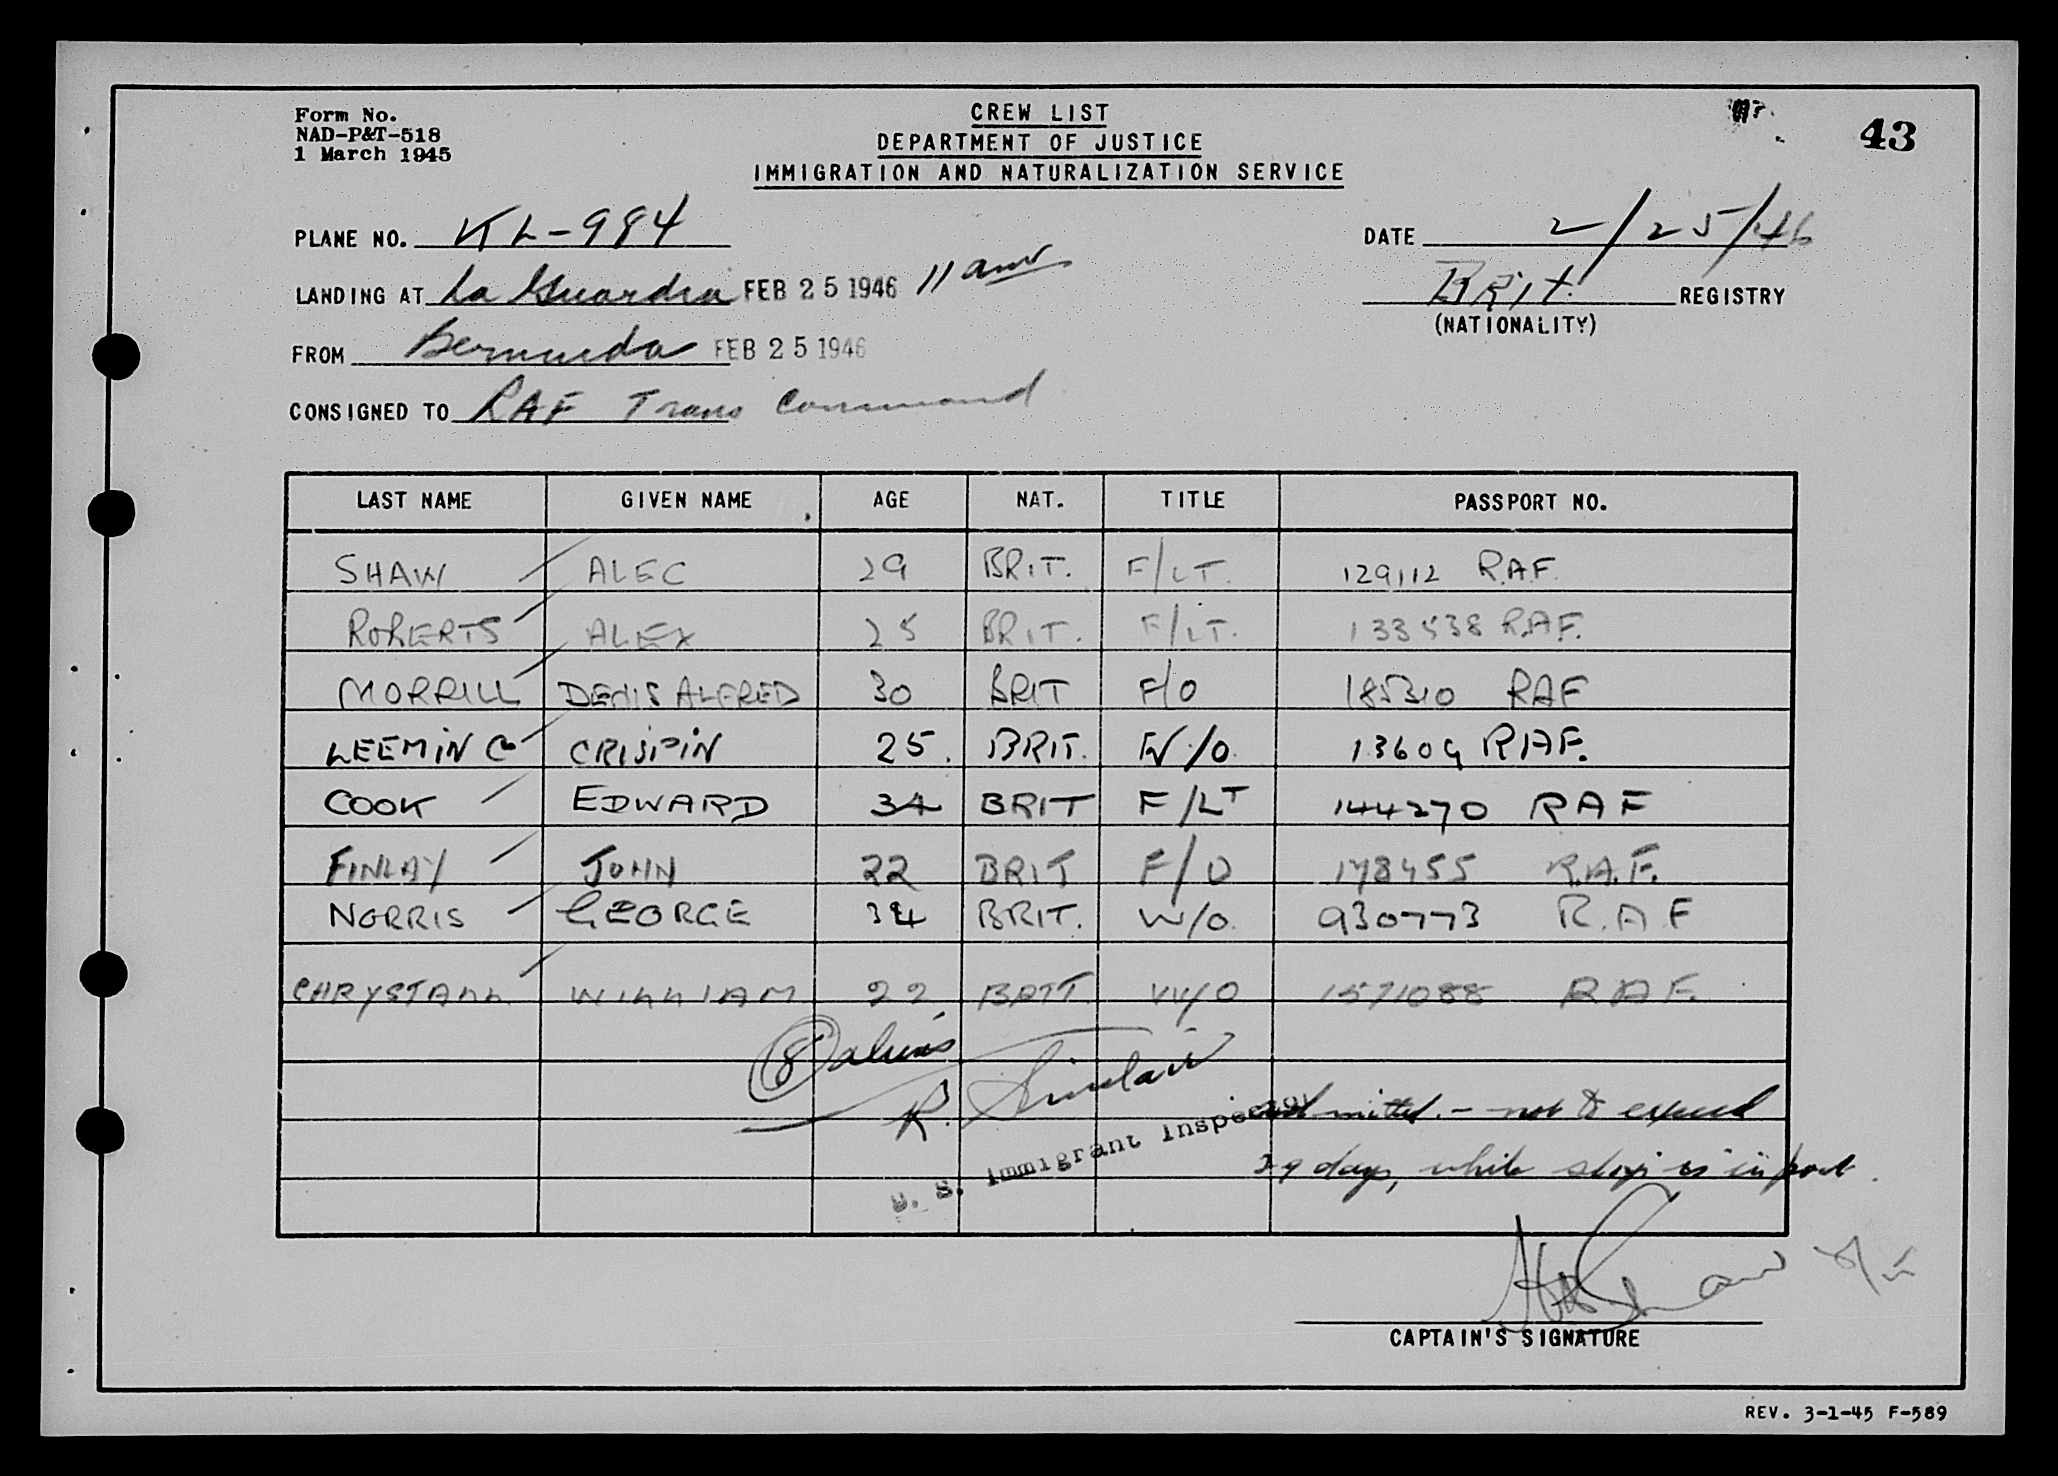 Form No.
NAD-P&T-518
1 March 1945
CREW LIST
DEPARTMENT OF JUSTICE
IMMIGRATION AND NATURALIZATION SERVICE
43
PLANE NO. KL-984
DATE 2/25/46
LANDING AT La Guardia FEB 25 1946 11 am
Brit. REGISTRY
(NATIONALITY)
FROM Bermuda FEB 25 1946
CONSIGNED TO RAF Trans Command
LAST NAME GIVEN NAME AGE NAT. TITLE PASSPORT NO.
SHAW ALEC 29 BRIT. F/LT. 129112 R.A.F.
ROBERTS ALEX 25 BRIT. F/LT. 133538 R.A.F.
MORRILL DENIS ALFRED 30 BRIT F/O 185310 RAF
LEEMING CRISPIN 25. BRIT. W/O. 13609 RAF.
COOK EDWARD 34 BRIT F/LT 144270 RAF
FINLAY JOHN 22 BRIT F/O 178455 R.A.F.
NORRIS GEORGE 34 BRIT. W/O. 930773 R.A.F
CHRYSTALL WILLIAM 22 BRIT. W/O 1571088 RAF.
8 aliens
R. Sinclair
U. S. Immigrant Inspector
admitted. - not to exceed
29 days, while ship is in port.
CAPTAIN'S SIGNATURE
REV. 3-1-45 F-589